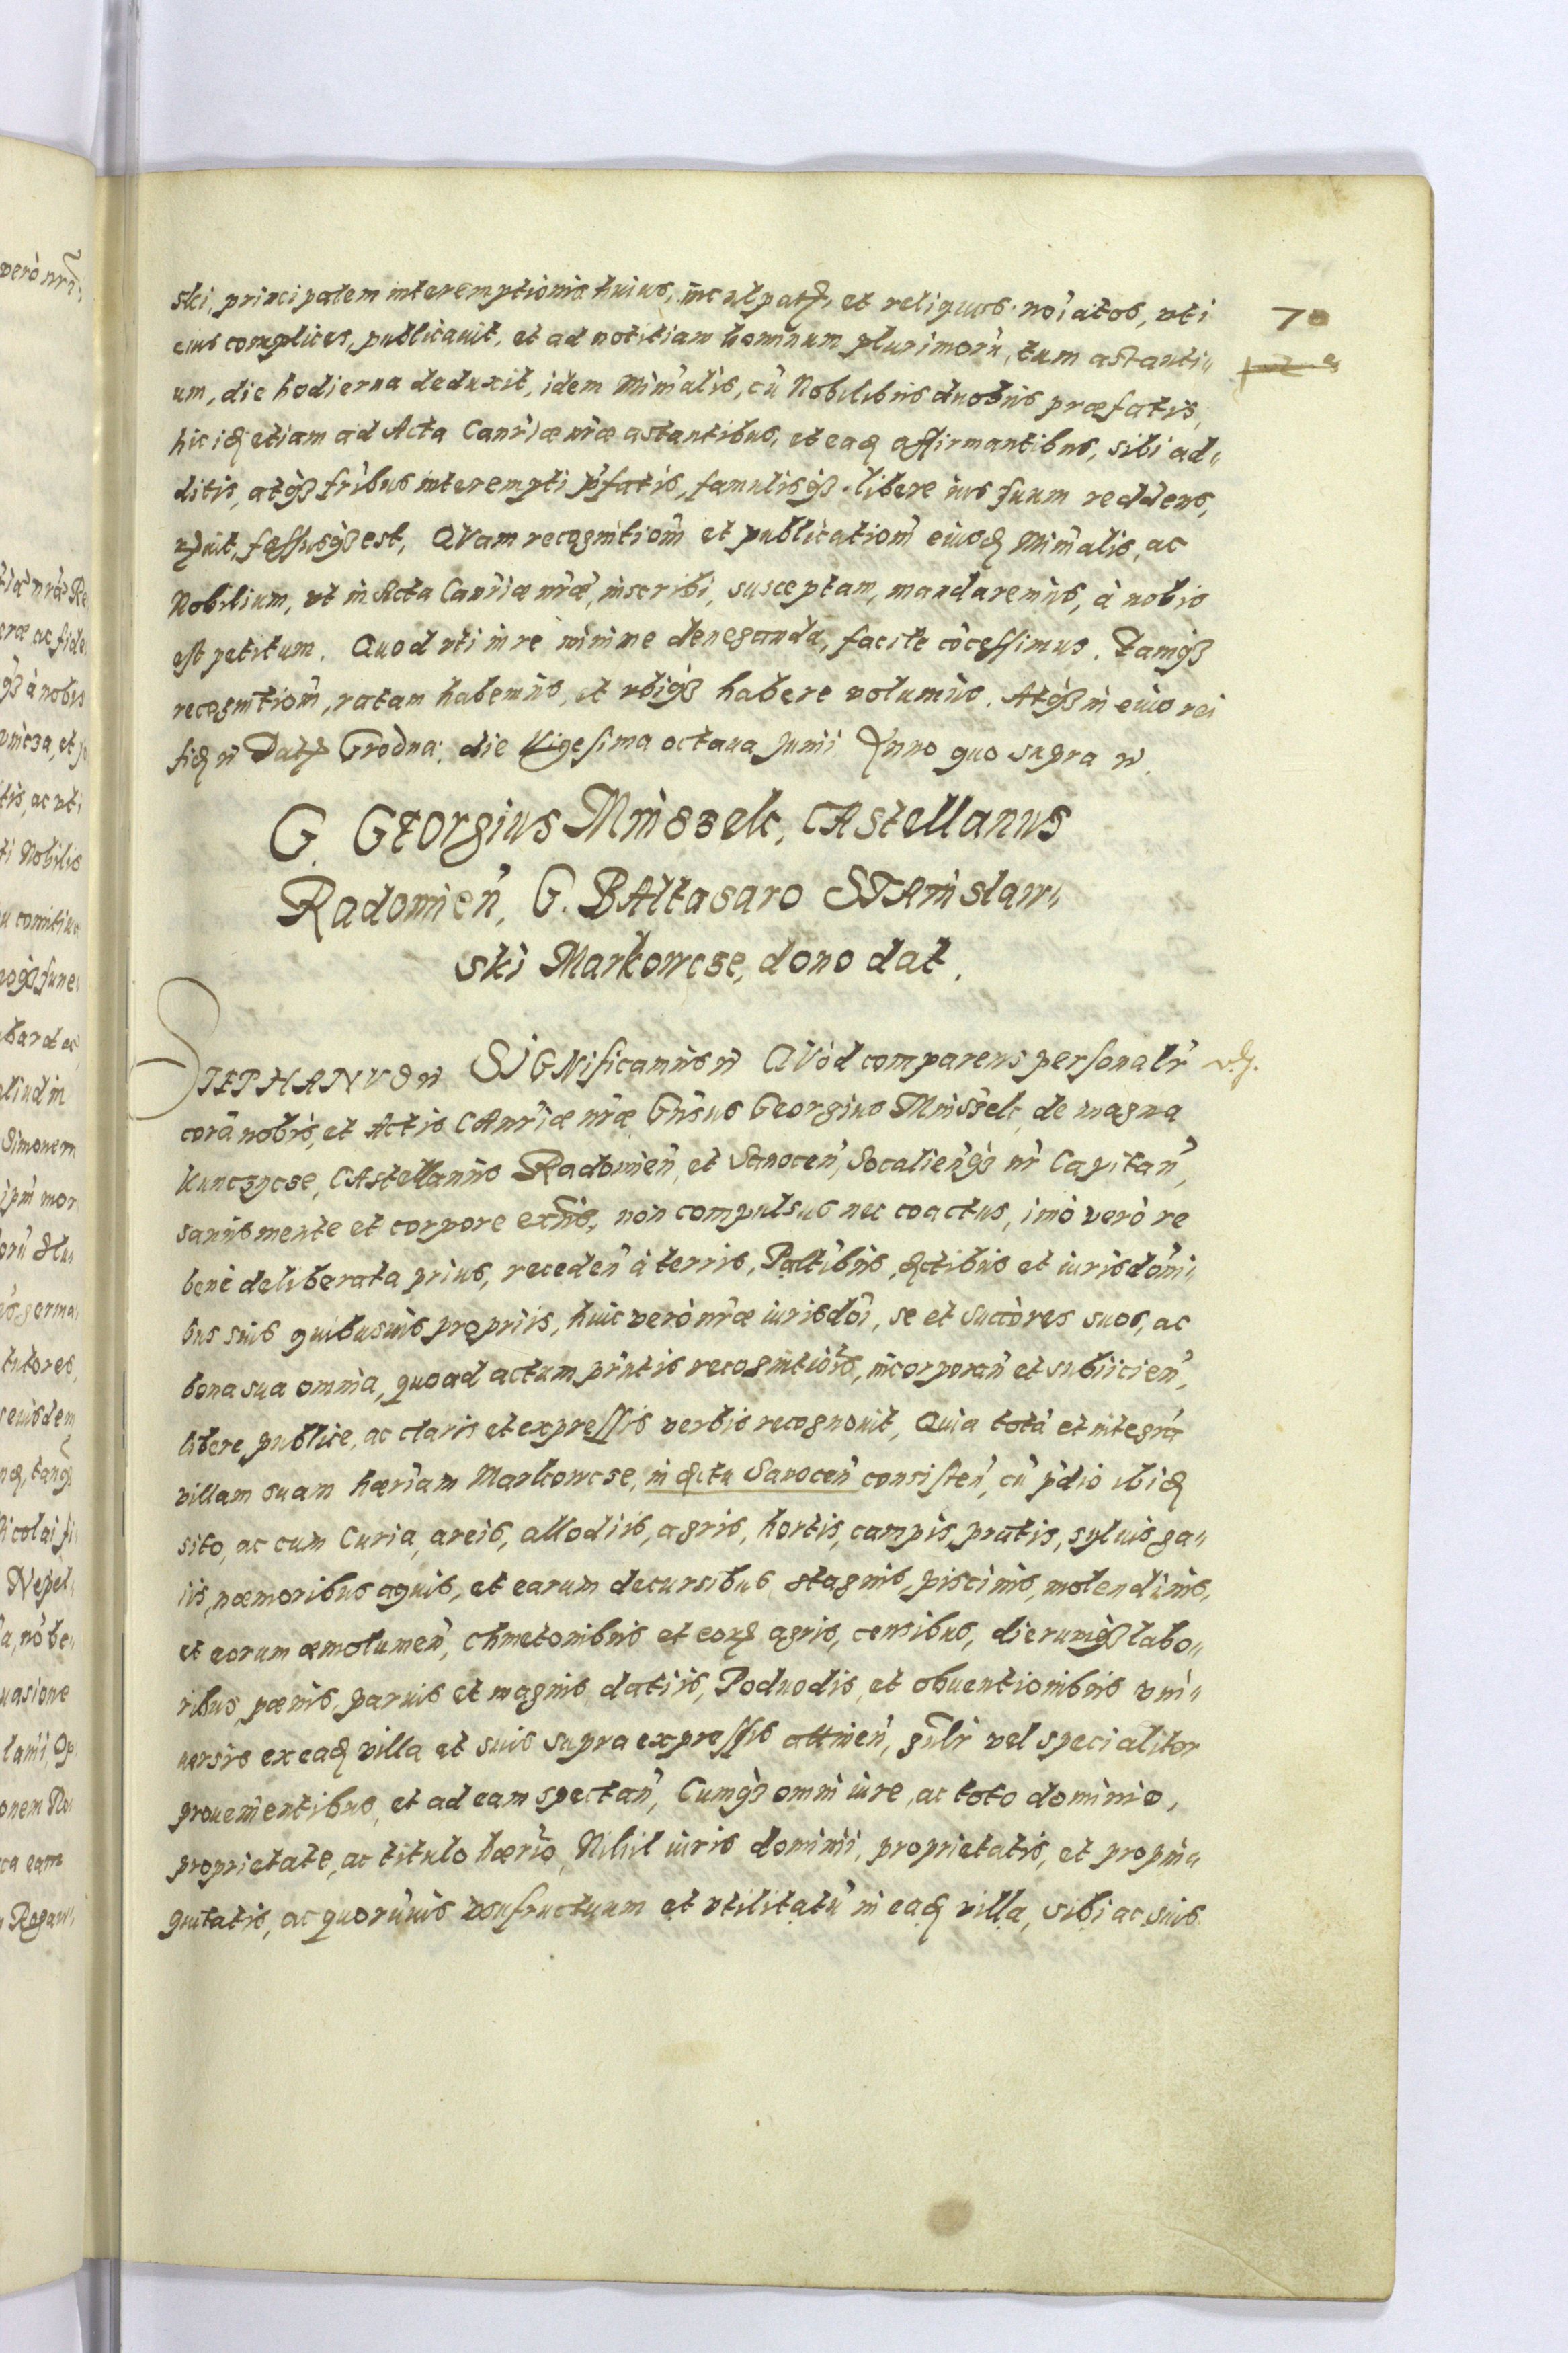 ski, principalem interemptionis huius, inculpatꝫ, et reliquos no͠iatos, vti
eius complices, publicauit, et ad notitiam hominum plurimorū, tum astanti„
um, die hodierna deduxit, idem Min͠alis, cū Nobilibus duobus præfatis,
hic idꝫ etiam ad Acta Can͠riæ n͠ræ astantibus, et eadꝫ affirmantibus, sibi ad„
ditis, atqꝫ fr͠ibus interempti p͠fatis, famulisqꝫ libere ius suum reddens,
fassusqꝫ est, QVam recognition͠ et publication͠ eiusdꝫ Min͠alis, ac
Nobilium, vt in Acta Can͠riæ n͠ræ, inscribi, susceptam, mandaremus, à nobis
est petitum. Quod vti in re minime deneganda, facile co͠cessimus. Eamqꝫ
recognition͠, ratam habemus, et vbiqꝫ habere volumus. Atqꝫ in eius rei
fidꝫ Datꝫ Grodna, die Vigesima octaua Junii Anno quo supra
G. GEorgius Mniszek, CAstellanus
Radomien͠, G. BAltasaro STAnislaw„
ski Markowcze, dono dat.
STEPHANVS SIGNificamus QVòd comparens personalr͠
corā nobis, et Actis CAn͠riæ n͠ræ G͠nsus Georgius Mniszek, de magna
kunczycze, CAstellanus Radomien͠, et Sanocen͠, Socalien͠qꝫ n͠r Capitan͠,
sanus mente et corpore ex͠ns, non compulsus nec coactus, imò verò re
bene deliberata prius, receden͠ à terris, Pal͠tibus, dꝫctibus et iurisdo͠ni„
bus suis quibusuis propriis, huic verò n͠ræ iurisdo͠i, se et succ͠ores suos, ac
bona sua omnia, quoad actum pr͠ntis recognitio͠is, incorporan͠ et subiicien͠,
libere, publice, ac claris et expressis verbis recognouit, Quia totā et integrā
villam suam hær͠iam Markowcze, in dꝫctu Sanocen͠ consisten͠, cū p͠dio ibidꝫ
sito, ac cum Curia, areis, allodiis, agris, hortis, campis, pratis, syluis ga„
iis, næmoribus aquis, et earum decursibus, stagnis, piscinis, molendinis,
et eorum æmolumen͠, chmetonibus et eorꝫ agris, censibus, dierumqꝫ labo„
ribus, pænis, paruis et magnis datiis, Poduodis, et obuentionibus vni„
uersis ex eadꝫ villa et suis supra expressis attinen͠, g͠nlr vel specialiter
prouenientibus, et ad eam spectan͠, Cumqꝫ omni iure, ac toto dominio,
proprietate, ac titulo hær͠io, Nihil iuris dominii, proprietatis, et propin„
quitatis, ac quorūuis vsufructuum et vtilitatū in eadꝫ villa, sibi ac suis
70